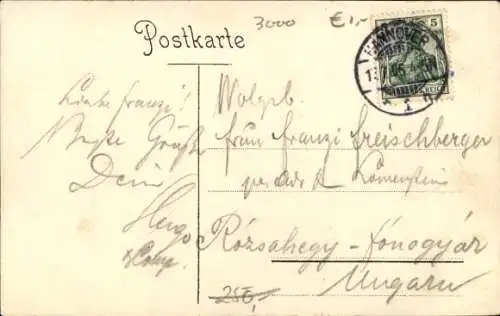 3000
€1,-
Postkarte
5
HANNOVER
REICH
Liebe Franzi!
Beste Grüße
Dein
Hugo
Wolgeb.
Frau Franzi Freischberger
per adr
Rózsahegy-Fonogyár
Ungarn
250,